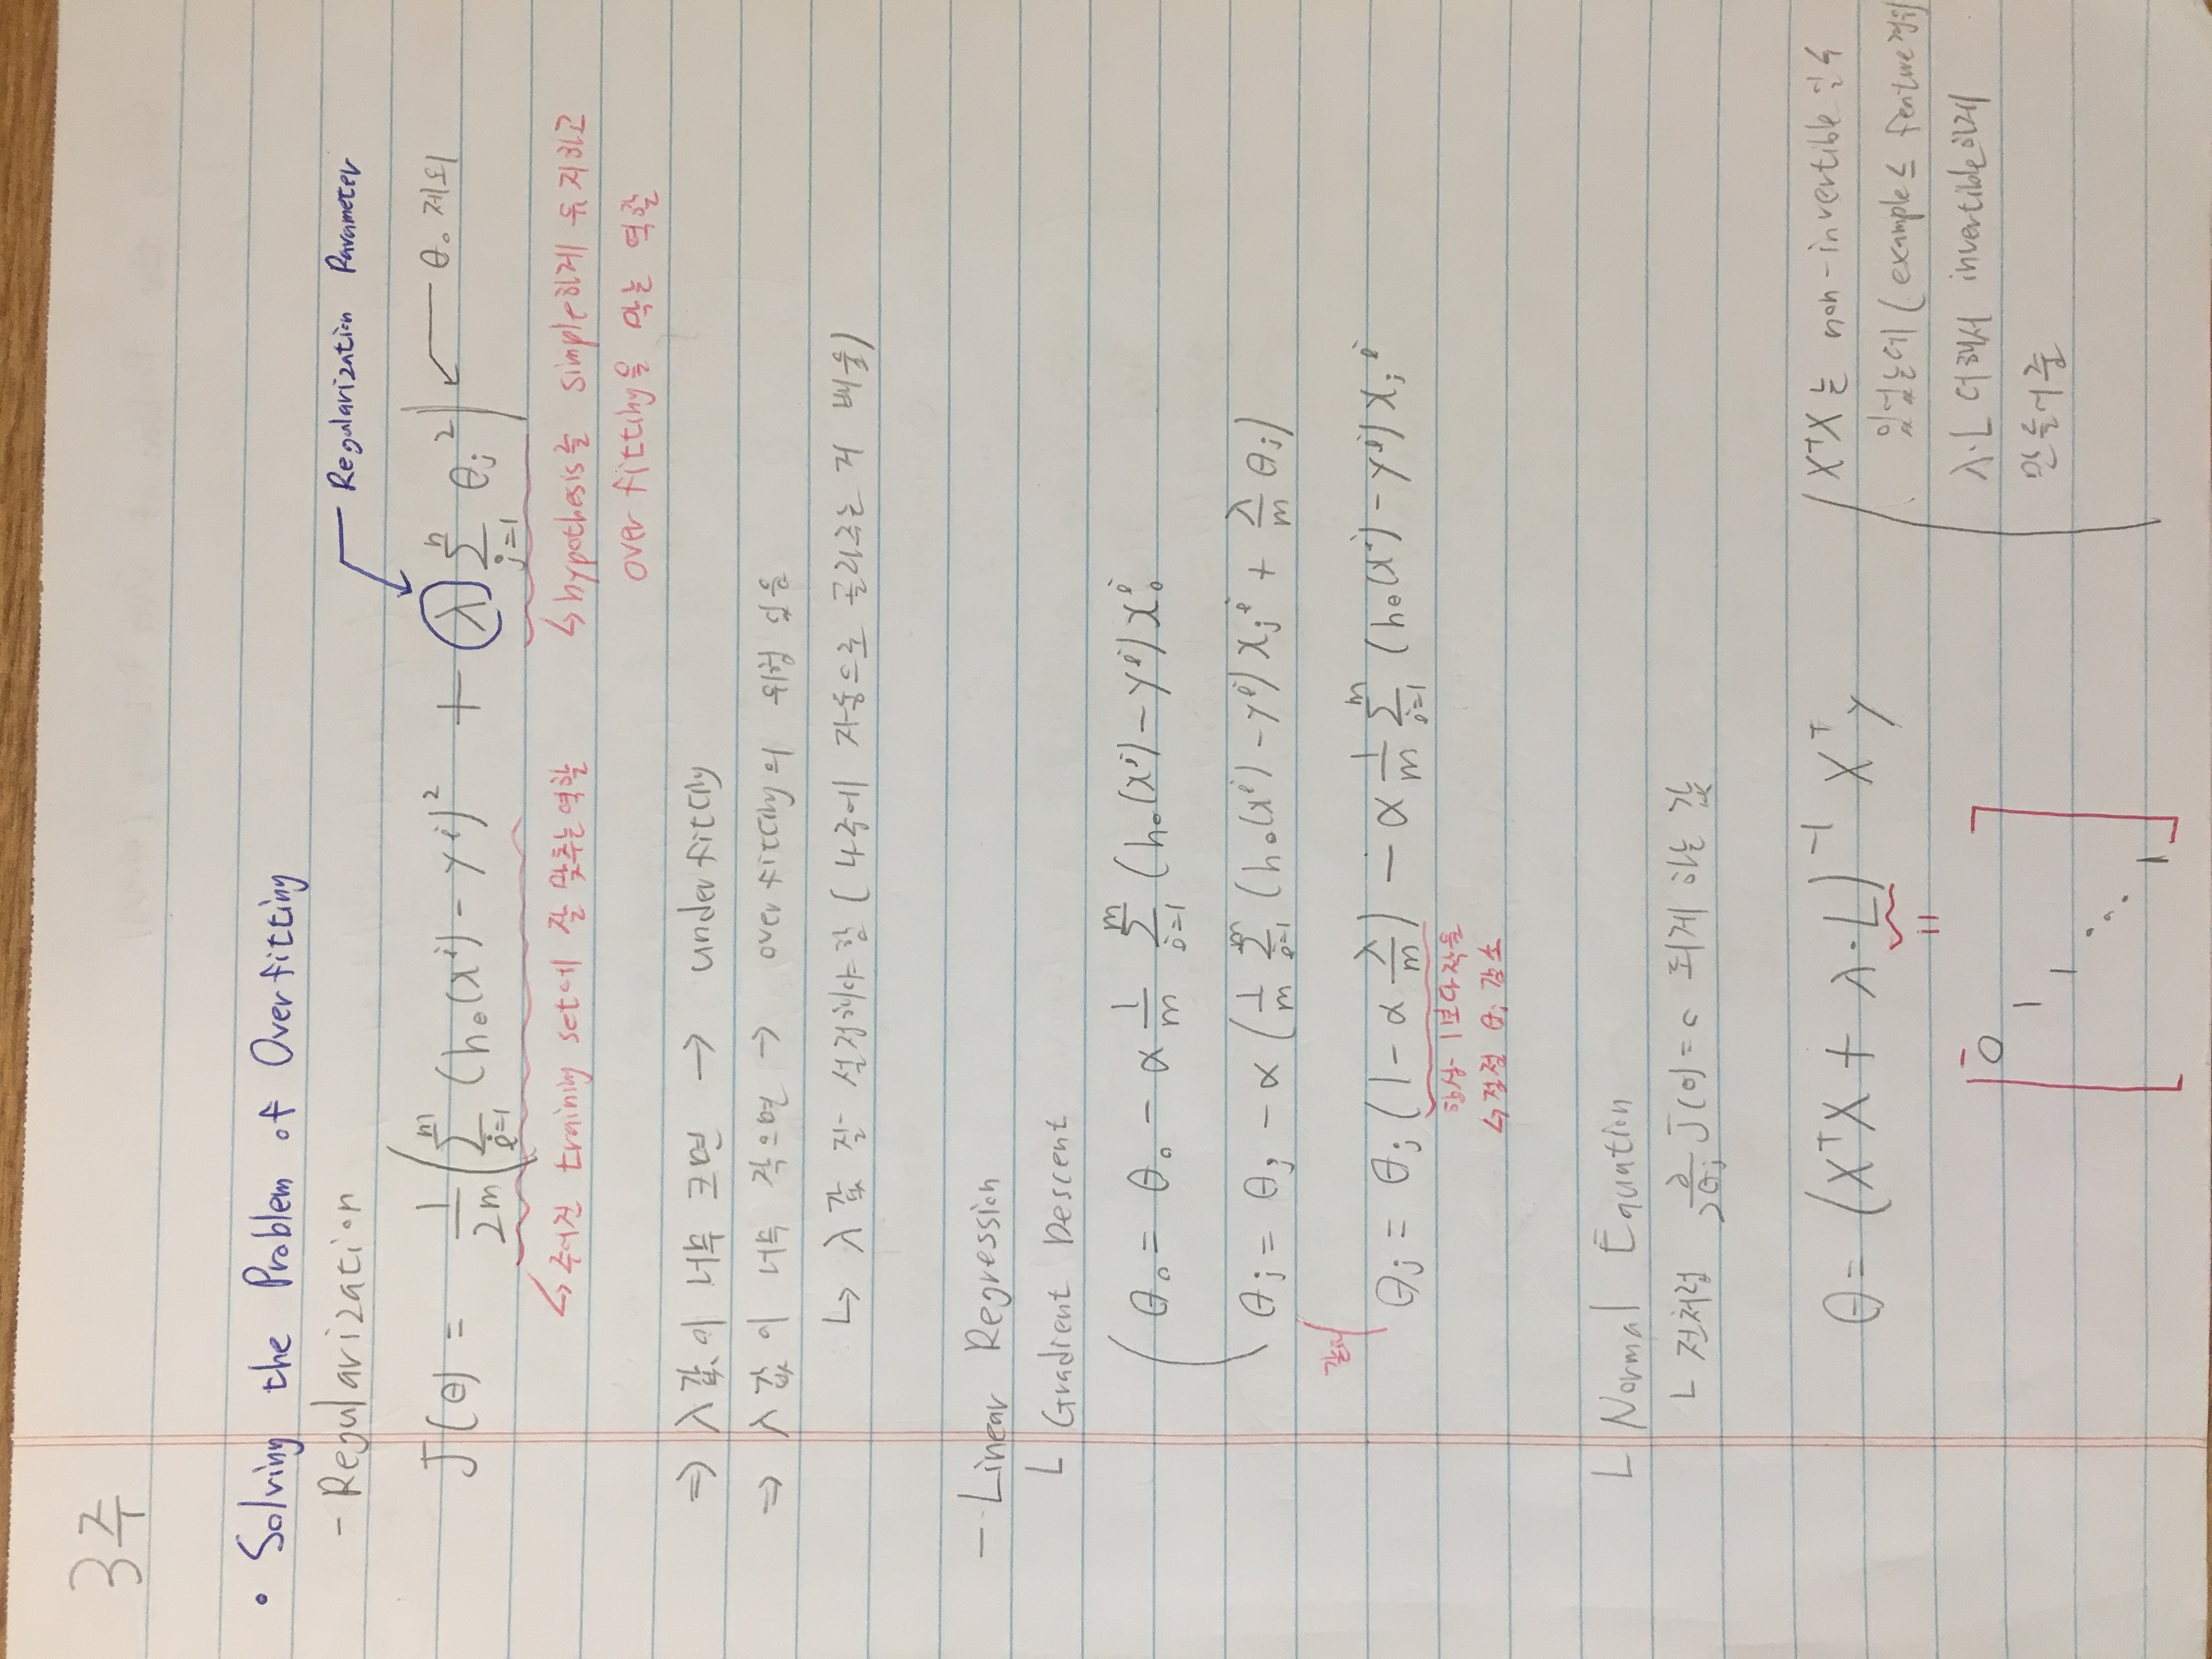 3주
• Solving the Problem of Overfitting
- Regularization
Regularization Parameter
J(θ) = 1/2m ( Σ_{i=1}^{m} (h_θ(x^i) - y^i)² + λ Σ_{j=1}^{n} θ_j² ) ← θ₀ 제외
↳ 주어진 training set에 잘 맞추는 역할
↳ hypothesis를 simple하게 유지하고
overfitting을 막는 역할
⇒ λ값이 너무 크면 → underfitting
⇒ λ값이 너무 작으면 → overfitting의 위험 있음
↳ λ값 잘 설정해야함 (4주에 자동으로 골라주는 거 배움)
- Linear Regression
└ Gradient Descent
θ₀ = θ₀ - α 1/m Σ_{i=1}^{m} (h_θ(x^i) - y^i) x₀^i
θ_j = θ_j - α ( 1/m Σ_{i=1}^{m} (h_θ(x^i) - y^i) x_j^i + λ/m θ_j )
같다
θ_j = θ_j (1 - α λ/m) - α 1/m Σ_{i=1}^{m} (h_θ(x^i) - y^i) x_j^i
항상 1보다 작음
↳ 점점 θ_j 감소
└ Normal Equation
└ 전처럼 ∂/∂θ_j J(θ) = 0 되게 하는 값
θ = (XᵀX + λ·L)⁻¹ Xᵀy
=
0
1
1
⋱
1
XᵀX는 non-invertible일 수
있었는데 (example ≤ feature 경우)
λ·L 더해서 invertible하게
만들어줌